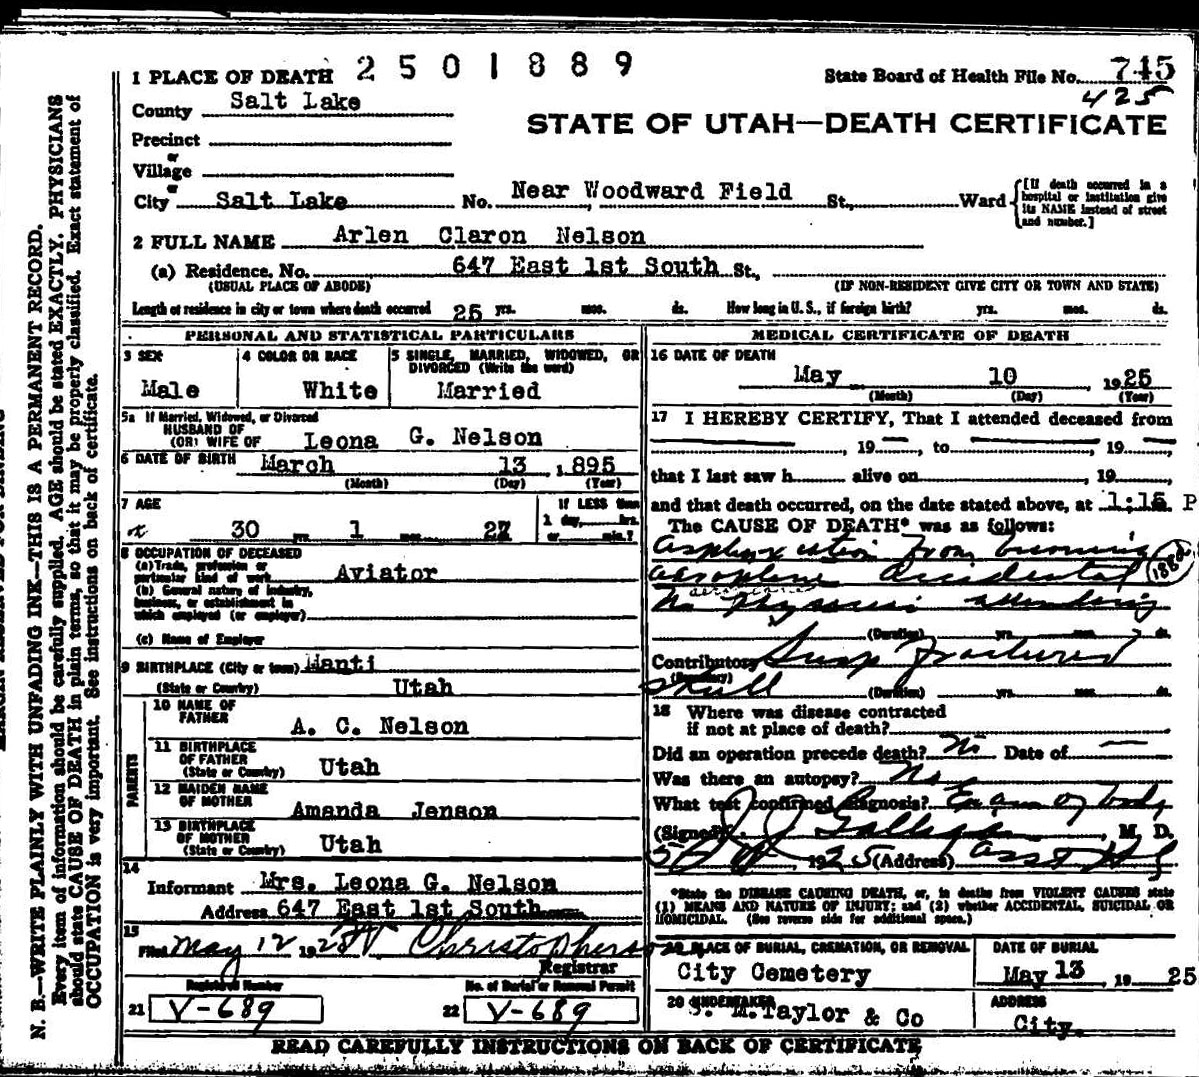 2501889
1 PLACE OF DEATH
State Board of Health File No. 745
425
County Salt Lake
STATE OF UTAH—DEATH CERTIFICATE
Precinct
or
Village
or
City Salt Lake No. Near Woodward Field St., Ward
[If death occurred in a hospital or institution give its NAME instead of street and number.]
2 FULL NAME Arlen Claron Nelson
(a) Residence. No. 647 East 1st South St.,
(USUAL PLACE OF ABODE) (IF NON-RESIDENT GIVE CITY OR TOWN AND STATE)
Length of residence in city or town where death occurred 25 yrs. mos. ds. How long in U. S., if foreign birth? yrs. mos. ds.
PERSONAL AND STATISTICAL PARTICULARS
3 SEX
Male
4 COLOR OR RACE
White
5 SINGLE, MARRIED, WIDOWED, OR
DIVORCED (Write the word)
Married
5a If Married, Widowed, or Divorced
HUSBAND OF
(OR) WIFE OF Leona G. Nelson
6 DATE OF BIRTH March 13 , 1895
(Month) (Day) (Year)
7 AGE
30 yrs. 1 mos. 27
If LESS than
1 day, hrs.
or min.?
8 OCCUPATION OF DECEASED
(a) Trade, profession or
particular kind of work Aviator
(b) General nature of industry,
business, or establishment in
which employed (or employer)
(c) Name of Employer
9 BIRTHPLACE (City or town) Manti
(State or Country) Utah
PARENTS
10 NAME OF
FATHER A. C. Nelson
11 BIRTHPLACE
OF FATHER
(State or Country) Utah
12 MAIDEN NAME
OF MOTHER Amanda Jenson
13 BIRTHPLACE
OF MOTHER
(State or Country) Utah
14
Informant Mrs. Leona G. Nelson
Address 647 East 1st South
15
Filed May 12 1925
Registrar
Registered Number
21 V-689
No. of Burial or Removal Permit
22 V-689
MEDICAL CERTIFICATE OF DEATH
16 DATE OF DEATH
May 10 1925
(Month) (Day) (Year)
17 I HEREBY CERTIFY, That I attended deceased from
, 19 , to , 19 ,
that I last saw h alive on , 19 ,
and that death occurred, on the date stated above, at 1:15 P
The CAUSE OF DEATH* was as follows:
asphyxiation from burning
aeroplane accidental
188
aeroplane
no physician attending
(Duration) yrs. mos. ds.
Contributory fractured
(Secondary)
skull (Duration) yrs. mos. ds.
18 Where was disease contracted
if not at place of death?
Did an operation precede death? No Date of —
Was there an autopsy? No
What test confirmed diagnosis? Exam of body
(Signed) J. J. , M. D.
1925 (Address)
*State the DISEASE CAUSING DEATH, or, in deaths from VIOLENT CAUSES state
(1) MEANS AND NATURE OF INJURY; and (2) whether ACCIDENTAL, SUICIDAL OR
HOMICIDAL. (See reverse side for additional space.)
19 PLACE OF BURIAL, CREMATION, OR REMOVAL
City Cemetery
DATE OF BURIAL
May 13 , 19 25
20 UNDERTAKER
S. M. Taylor & Co
ADDRESS
City.
READ CAREFULLY INSTRUCTIONS ON BACK OF CERTIFICATE
N. B.—WRITE PLAINLY WITH UNFADING INK—THIS IS A PERMANENT RECORD.
Every item of information should be carefully supplied. AGE should be stated EXACTLY. PHYSICIANS
should state CAUSE OF DEATH in plain terms, so that it may be properly classified. Exact statement of
OCCUPATION is very important. See instructions on back of certificate.